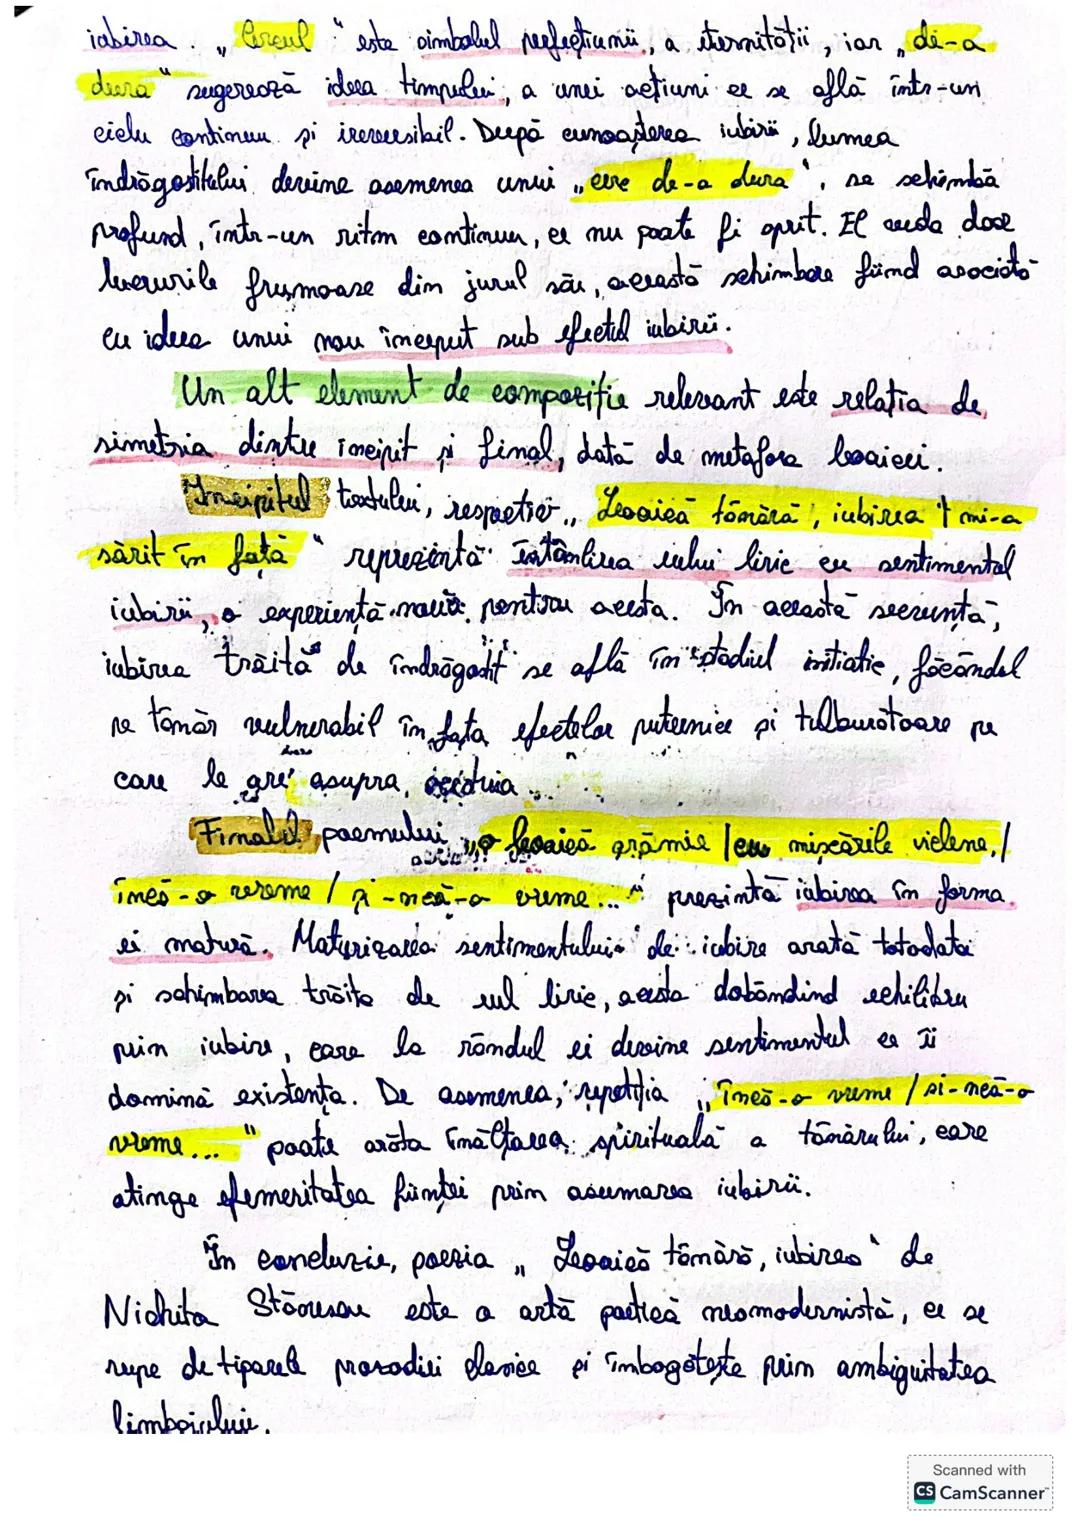 iubirea. „Cercul" este simbolul perfecțiunii, a eternității, iar „de-a
dura" sugerează ideea timpului, a unei acțiuni ce se află într-un
ciclu continuu și ireversibil. După cunoașterea iubirii, lumea
îndrăgostitului devine asemenea unui „cerc de-a dura", se schimbă
profund, într-un ritm continuu, ce nu poate fi oprit. El vede doar
lucrurile frumoase din jurul său, această schimbare fiind asociată
cu ideea unui nou început sub efectul iubirii.
Un alt element de compoziție relevant este relația de
simetria dintre incipit și final, dată de metafora leoaicei.
Incipitul textului, respectiv „Leoaică tânără, iubirea / mi-a
sărit în față" reprezintă întâlnirea eului liric cu sentimentul
iubirii, o experiență nouă pentru acesta. În această secvență,
iubirea trăită de îndrăgostit se află în stadiul inițiatic, făcându-l
pe tânăr vulnerabil în fața efectelor puternice și tulburătoare pe
care le are asupra acestuia.
Finalul poemului „o leoaică arămie / cu mișcările viclene, /
încă-o vreme / și-ncă-o vreme..." prezintă iubirea în forma
ei matură. Maturizarea sentimentului de iubire arată totodată
și schimbarea trăită de eul liric, acesta dobândind echilibru
prin iubire, care la rândul ei devine sentimentul ce îi
domină existența. De asemenea, repetiția „încă-o vreme / si-ncă-o
vreme..." poate arăta înălțarea spirituală a tânărului, care
atinge efemeritatea ființei prin asumarea iubirii.
În concluzie, poezia „Leoaică tânără, iubirea" de
Nichita Stănescu este o artă poetică neomodernistă, ce se
rupe de tiparele prozodiei clasice și îmbogățește prin ambiguitatea
limbajului.
Scanned with
CS CamScanner